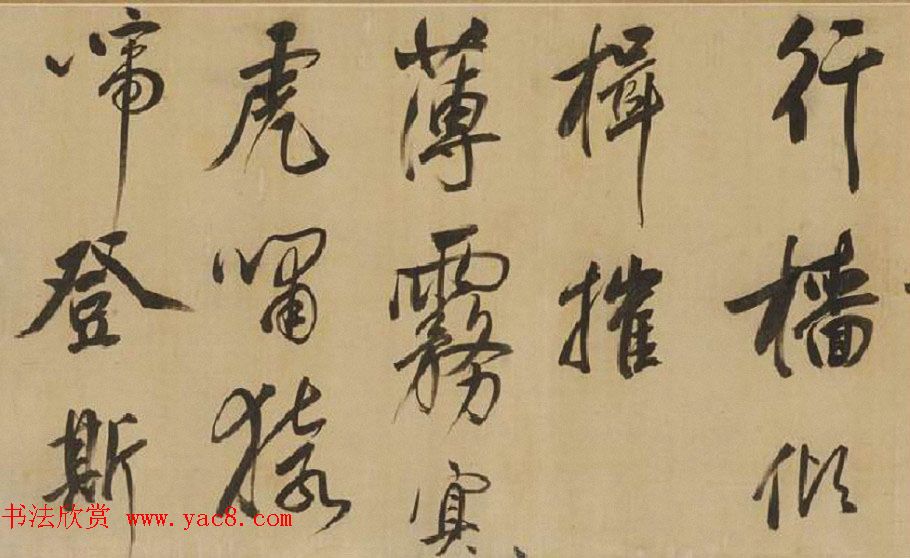 行檣傾
楫摧
薄霧冥
虎嘯猿
啼登斯
书法欣赏 www.yac8.com